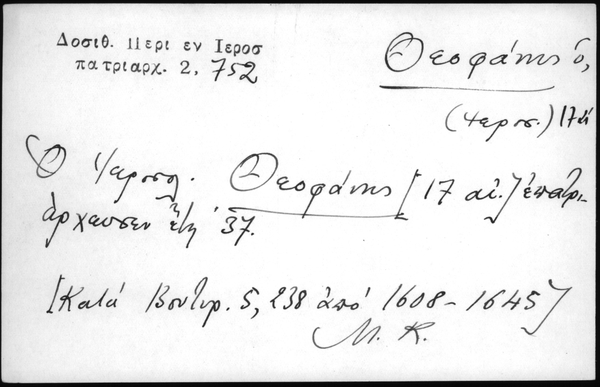 Δοσιθ. Περι εν Ιεροσ
πατριαρχ. 2, 752
Θεοφάνης ὁ,
(Ιεροσ.) 17 αἰ
Ὁ Ἱεροσολ. Θεοφάνης [17 αἰ.] ἐπατρι-
άρχευσεν ἔτη 37.
[Κατά Βουτυρ. 5, 238 ἀπό 1608-1645]
Μ. Κ.